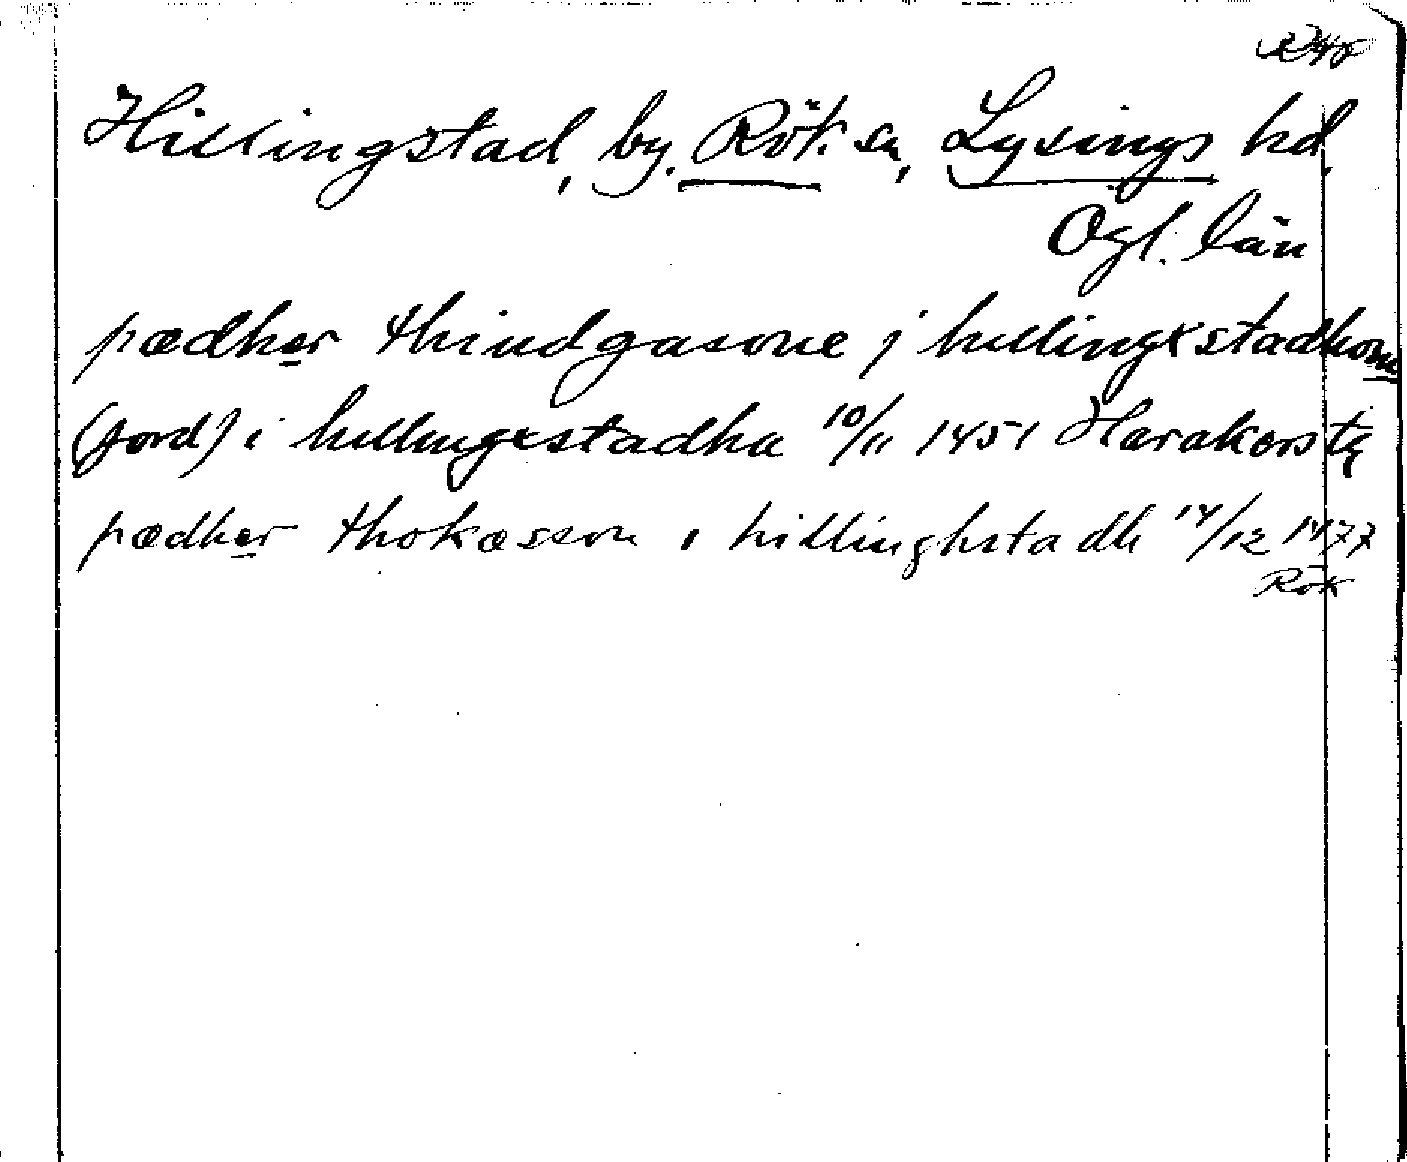 Hillingstad, by. Rök. sn, Lysings hd.
Ögl. län
pædher thindgasone j hillingxstadhom
(jord) i hillingxstadha 10/11 1451 Harakersty
pædher thokasson i hillinghstadh 14/12 1477
Rök